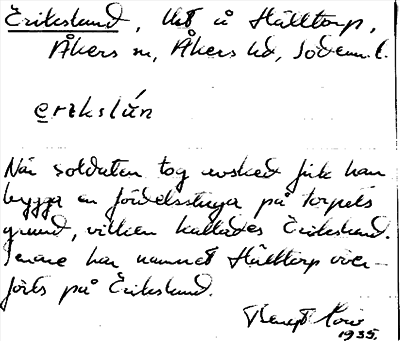 Erikslund, tkt å Hälltorp,
Åkers sn, Åkers hd, Södermanl. l.
erikslún
När soldaten tog avsked fick han
bygga en fördelsstuga på torpets
grund, vilken kallades Erikslund.
Senare har namnet Hälltorp över-
förts på Erikslund.
Bengt
1935.